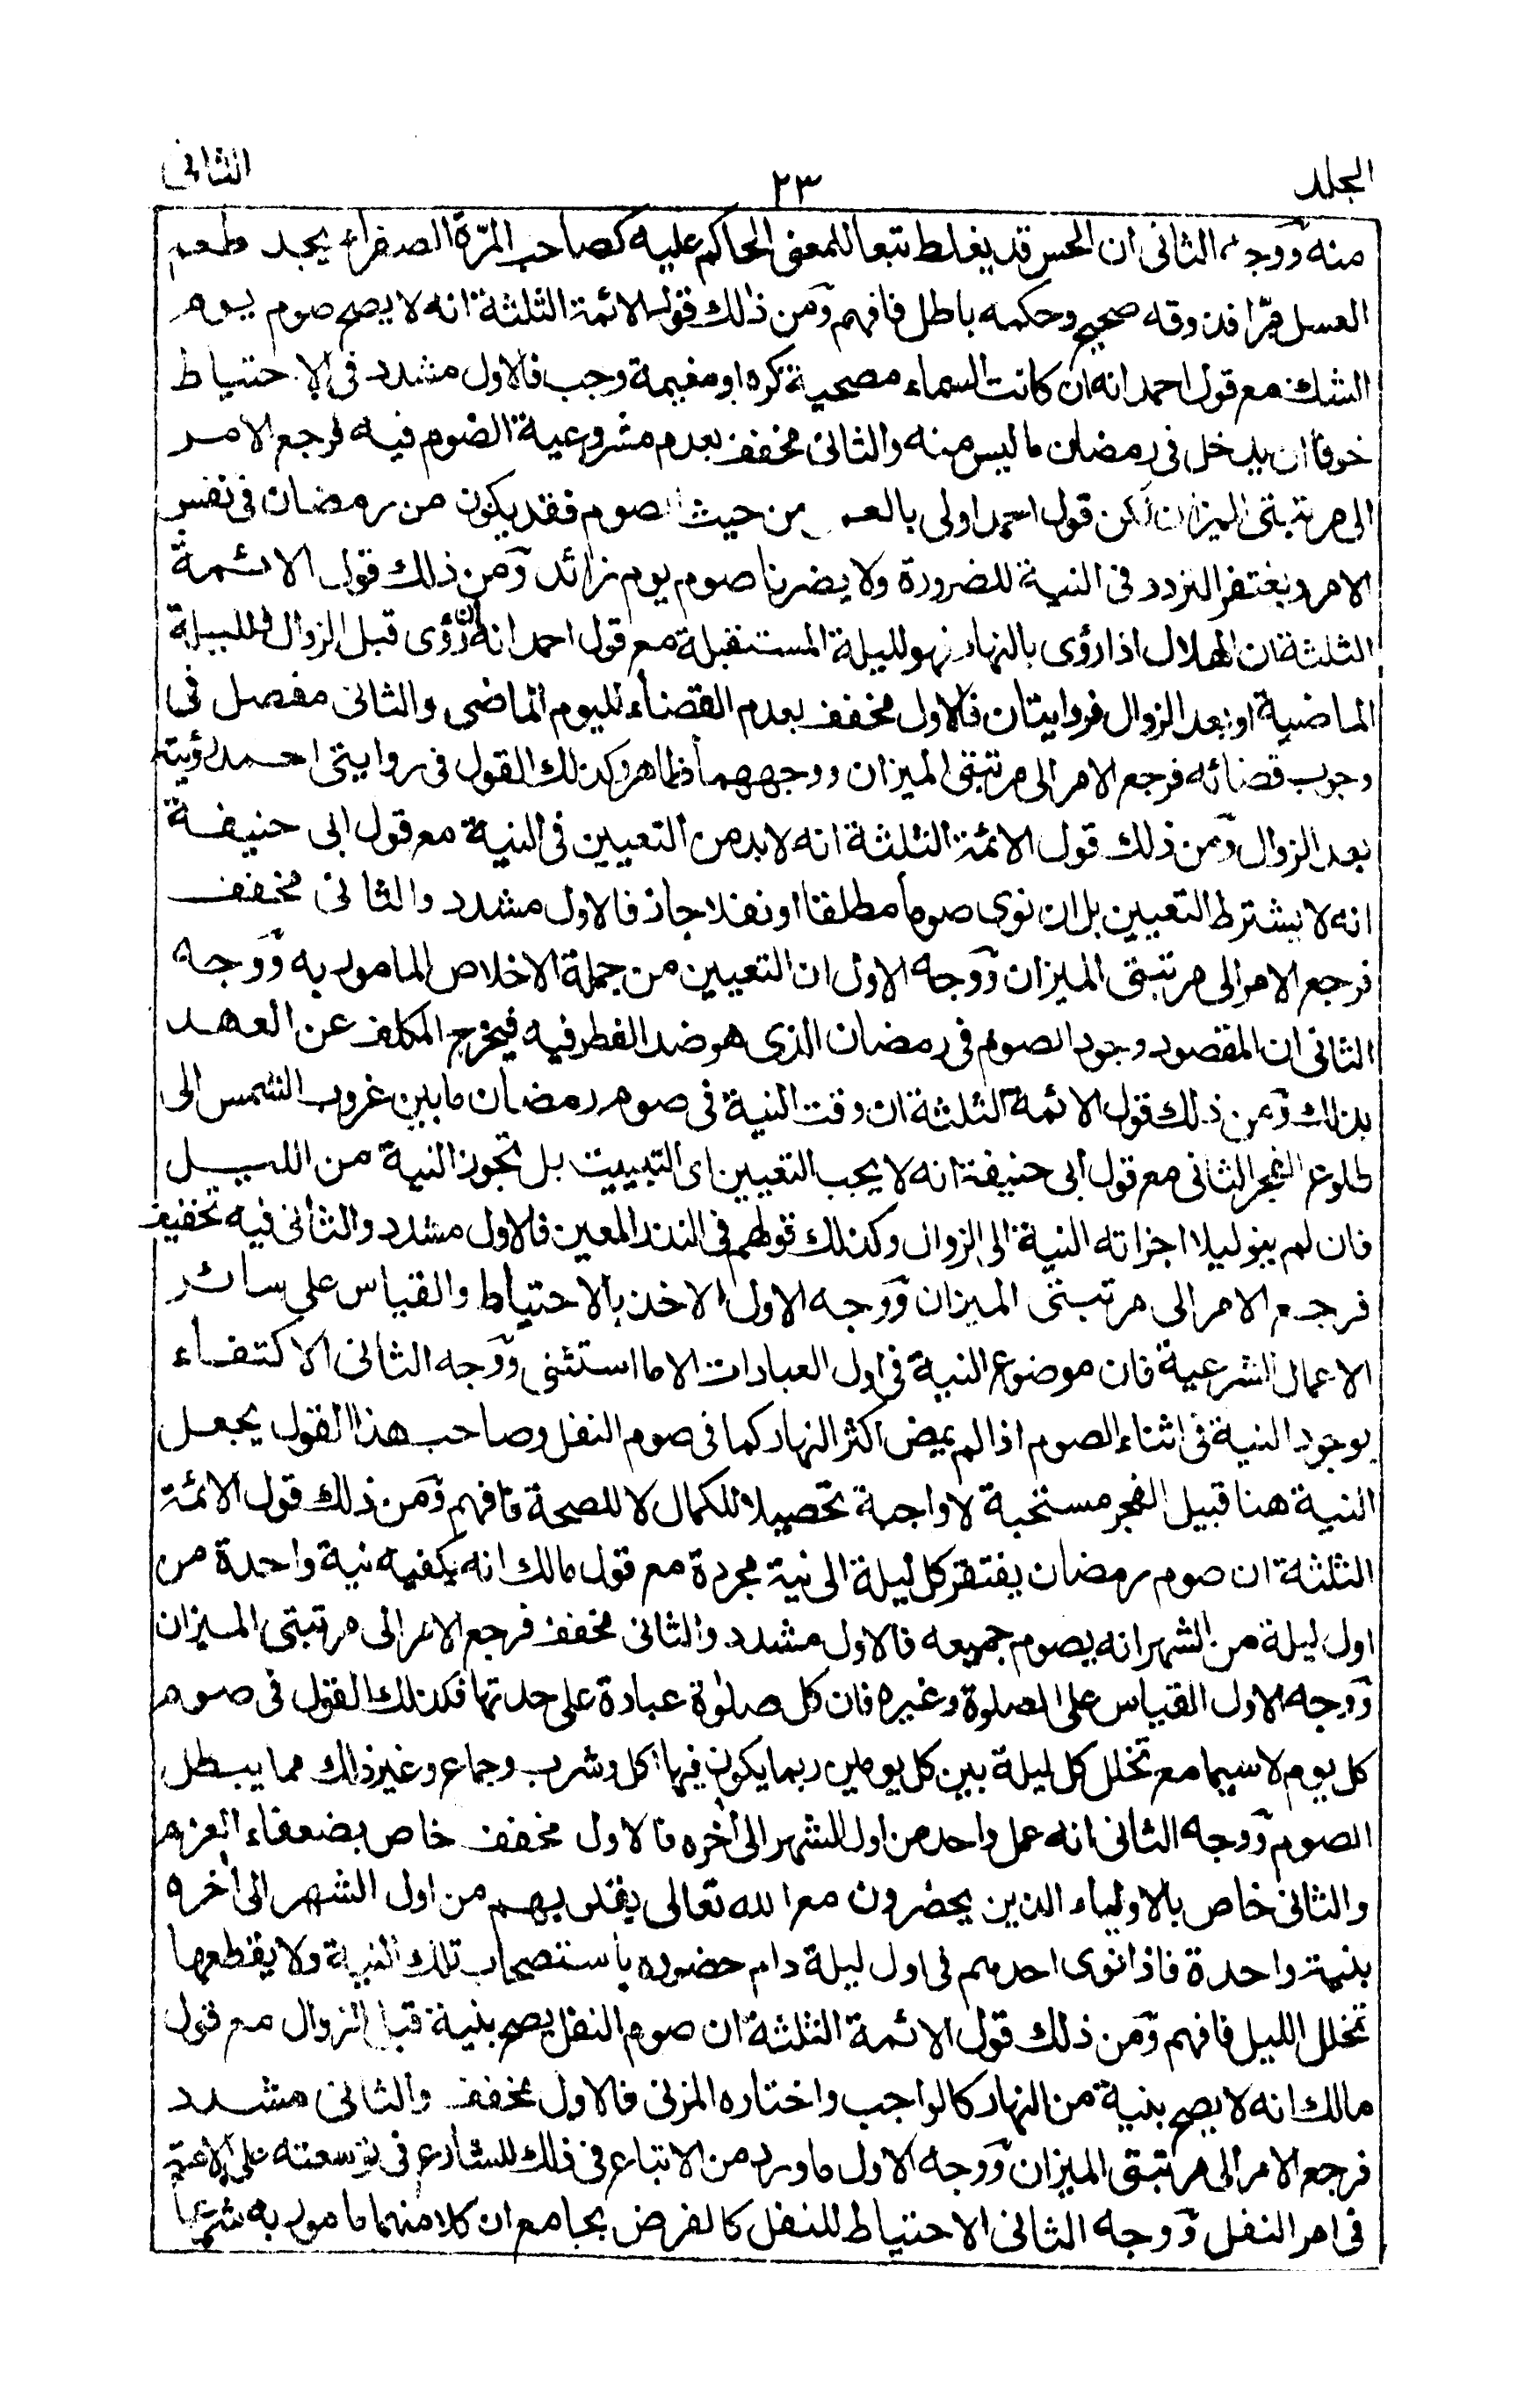 الجلد
٢٣
الثانى
منه ووجه الثانى ان الحس قد يغلط تبعا للمعنى الحاكم عليه كصاحب المرّة الصفراء يجد طعم
العسل مرّا فذوقه صحيح وحكمه باطل فافهم ومن ذلك قول الائمة الثلثة انه لا يصح صوم يوم
الشك مع قول احمد انه ان كانت السماء مصحية كره او مغيمة وجب فالاول مشدد فى الاحتياط
خوفا ان يدخل فى رمضان ما ليس منه والثانى مخفف بعدم مشروعية الصوم فيه فرجع الامر
الى مرتبتى الميزان لكن قول احمد اولى بالعمـ من حيث الصوم فقد يكون من رمضان فى نفس
الامر ويغتفر التردد فى النية للضرورة ولا يضرنا صوم يوم زائد ومن ذلك قول الائمة
الثلثة ان الهلال اذا رؤى بالنهار فهو لليلة المستقبلة مع قول احمد انه ان رؤى قبل الزوال فلليلة
الماضية او بعد الزوال فروايتان فالاول مخفف بعدم القضاء لليوم الماضى والثانى مفصل فى
وجوب قضائه فرجع الامر الى مرتبتى الميزان ووجههما ظاهر وكذلك القول فى روايتى احمد لرؤيته
بعد الزوال ومن ذلك قول الائمة الثلثة انه لابد من التعيين فى النية مع قول ابى حنيفة
انه لا يشترط التعيين بل ان نوى صوما مطلقا او نفلا جاز فالاول مشدد والثانى مخفف
فرجع الامر الى مرتبتى الميزان ووجه الاول ان التعيين من جملة الاخلاص المامور به ووجه
الثانى ان المقصود وجود الصوم فى رمضان الذى هو ضد الفطر فيه فيخرج المكلف عن العهد
بذلك ومن ذلك قول الائمة الثلثة ان وقت النية فى صوم رمضان ما بين غروب الشمس الى
طلوع الفجر الثانى مع قول ابى حنيفة انه لا يجب التعيين اى التبييت بل تجوز النية من الليل
فان لم ينو ليلا اجزاته النية الى الزوال وكذلك قولهم فى النذر المعين فالاول مشدد والثانى فيه تخفيف
فرجع الامر الى مرتبتى الميزان ووجه الاول الاخذ بالاحتياط والقياس على سائر
الاعمال الشرعية فان موضوع النية فى اول العبادات الا ما استثنى ووجه الثانى الاكتفاء
بوجود النية فى اثناء الصوم اذا لم يمض اكثر النهار كما فى صوم النفل وصاحب هذا القول يجعل
النية هنا قبيل الفجر مستحبة لا واجبة تحصيلا للكمال لا للصحة فافهم ومن ذلك قول الائمة
الثلثة ان صوم رمضان يفتقر كل ليلة الى نية مجردة مع قول مالك انه يكفيه نية واحدة من
اول ليلة من الشهر انه يصوم جميعه فالاول مشدد والثانى مخفف فرجع الامر الى مرتبتى الميزان
ووجه الاول القياس على الصلوة وغيره فان كل صلوة عبادة على حدتها فكذلك القول فى صوم
كل يوم لا سيما مع تخلل كل ليلة بين كل يومين ربما يكون فيها اكل وشرب وجماع وغير ذلك مما يبطل
الصوم ووجه الثانى انه عمل واحد من اول الشهر الى أخره فالاول مخفف خاص بضعفاء العزم
والثانى خاص بالاولياء الذين يحضرون مع الله تعالى بقلوبهم من اول الشهر الى أخره
بنية واحدة فاذا نوى احدهم فى اول ليلة دام حضوره باستصحاب تلك النية ولا يقطعها
تخلل الليل فافهم ومن ذلك قول الائمة الثلثة ان صوم النفل يصح بنية قبل الزوال مع قول
مالك انه لا يصح بنية من النهار كالواجب واختاره المزنى فالاول مخفف والثانى مشدد
فرجع الامر الى مرتبتى الميزان ووجه الاول ما ورد من الاتباع فى ذلك للشارع فى توسعته على الامة
فى امر النفل ووجه الثانى الاحتياط للنفل كالفرض بجامع ان كلا منهما مامور به شرعا